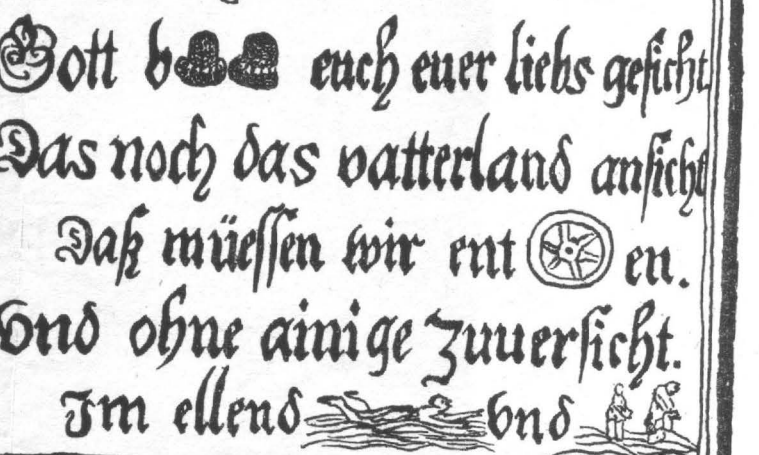 Gott b euch euer liebs gesicht
Das noch das vatterland ansicht
Daß müessen wir ent en.
Vnd ohne ainige Zuuersicht.
Im ellend vnd